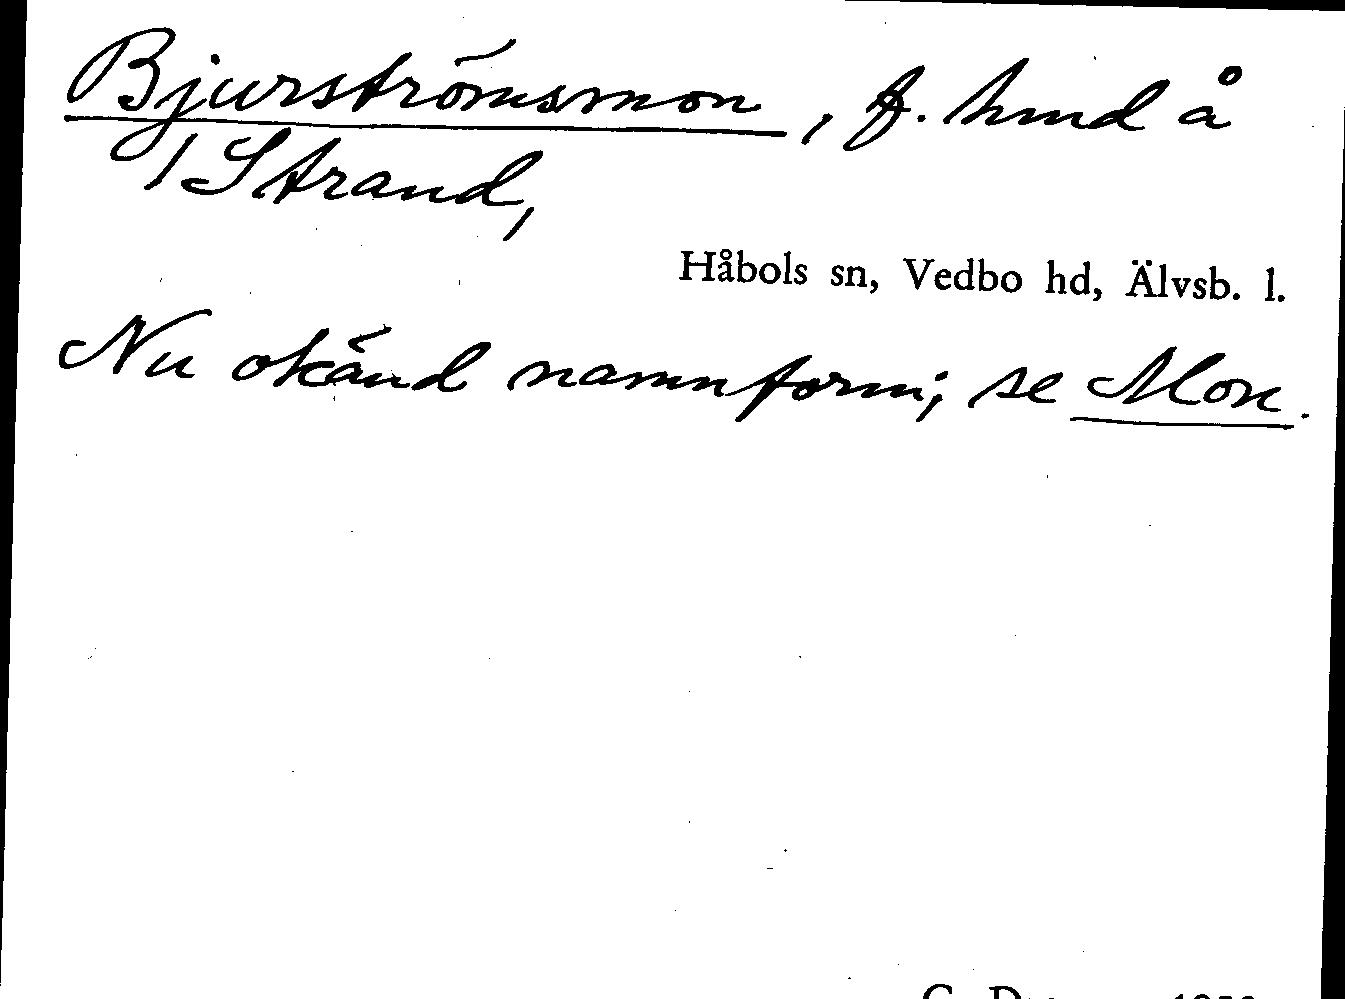 Bjurströmsmon, f. hmd å
1/Strand,
Håbols sn, Vedbo hd, Älvsb. l.
Nu okänd namnform; se Mon.